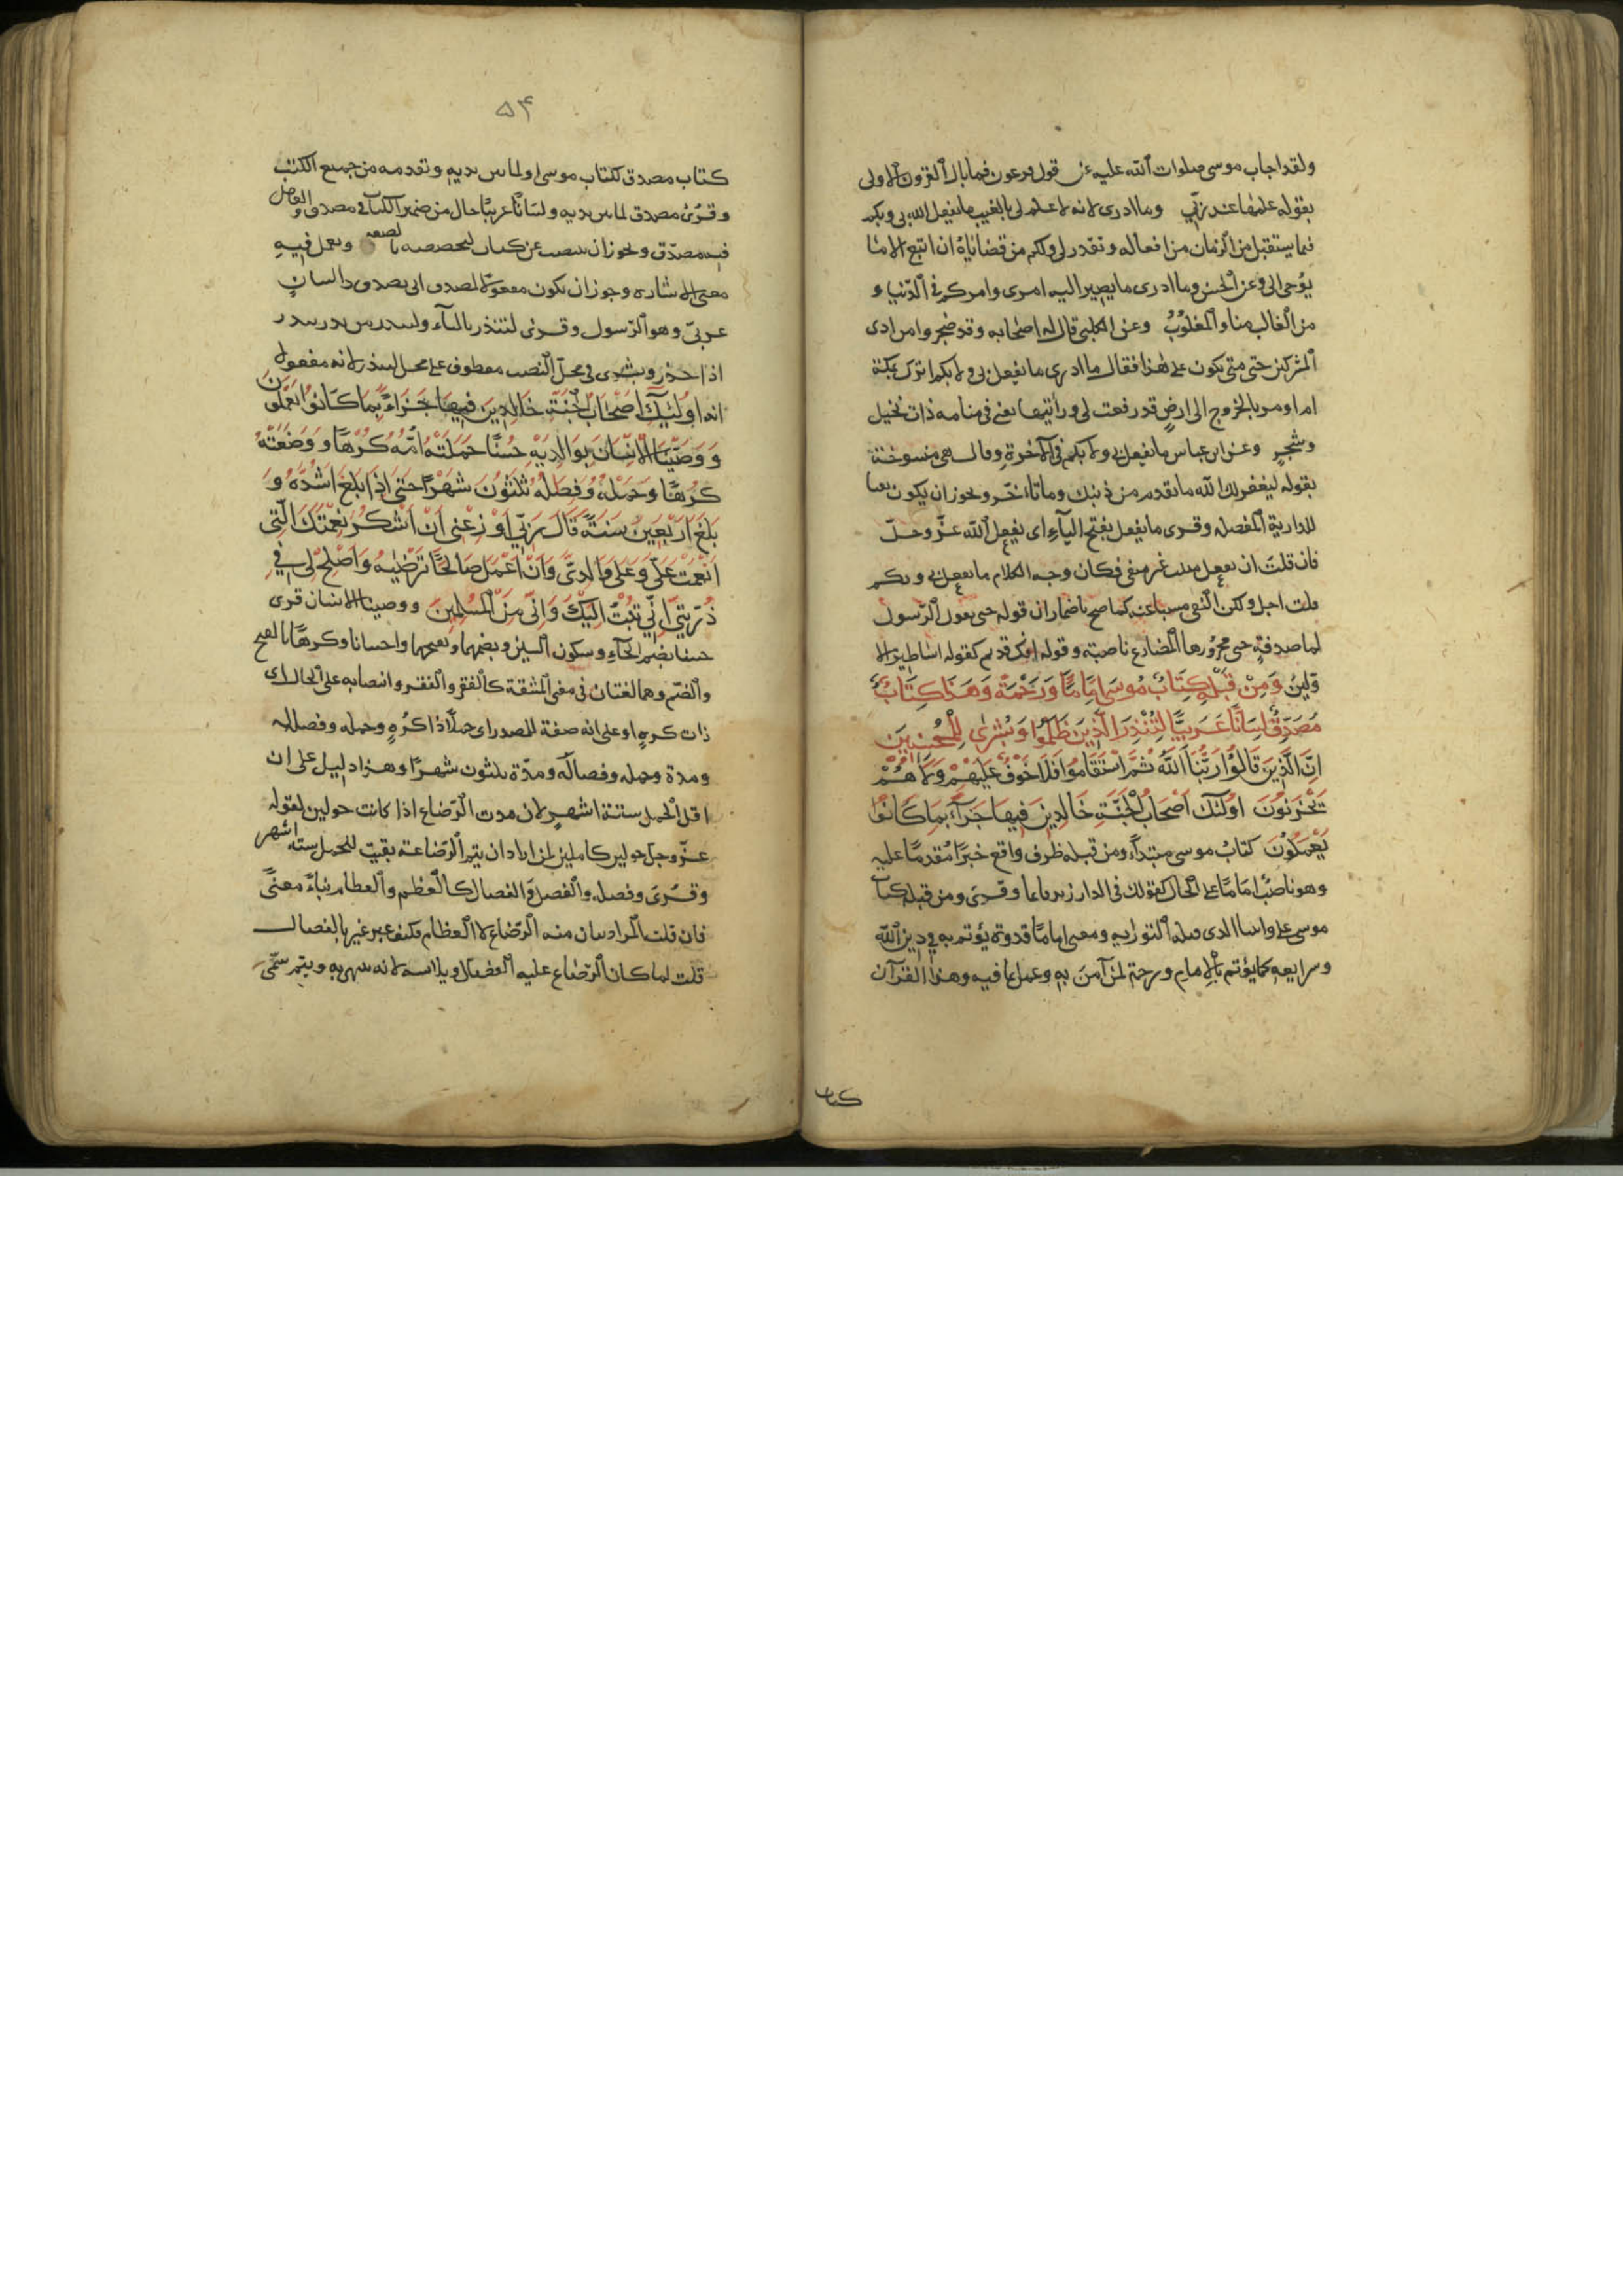 ولقد اجاب موسى صلوات الله عليه عن قول فرعون فما بال القرون الاولى
بقوله علمها عند ربّي وما ادرى لانه لا علم لى بالغيب ما يفعل الله بى وبكم
فيما يستقبل من الزمان من افعاله ونقدر لى ولكم من قضاياه ان اتبع الا ما
يوحى الى وعن الحسن وما ادرى ما يصير اليه امرى وامركم فى الدّنيا و
من الغالب منا والمغلوب وعن الكلبى قال له اصحابه وقد ضجروا من اذى
المشركين حتى متى نكون على هذا فقال ما ادرى ما يفعل بى ولا بكم اترك بمكة
ام اومر بالخروج الى ارض قد رفعت لى ورأيتها يعنى فى منامه ذات نخيل
وشجر وعن ابن عباس ما يفعل بى ولا بكم فى الآخرة وقال هى منسوخة
بقوله ليغفر لك الله ما تقدم من ذنبك وما تأخّر ويجوز ان يكون نفيا
للدارية المفصله وقرى ما يفعل بفتح الياء اى يفعل الله عزّ وجلّ
فان قلت ان يفعل مثبت غير منفى فكان وجه الكلام ما يفعل بى وبكم
قلت اجل ولكن النفى
لما صدفة قوله افك قديم كقوله اساطير الا
وّلين وَمِنْ قَبْلِهِ كِتَابُ مُوسَى اِمَامًا وَرَحْمَةً وَهَذَا كِتَابٌ
مُصَدِّقٌ لِسَانًا عَرَبِيًّا لِتُنْذِرَ الَّذِينَ ظَلَمُوا وَبُشْرٰى لِلْمُحْسِنِينَ
اِنَّ الَّذِينَ قَالُوا رَبُّنَا اللَّهُ ثُمَّ اسْتَقَامُوا فَلَا خَوْفٌ عَلَيْهِمْ وَلَا هُمْ
يَحْزَنُونَ اُولٰئِكَ اَصْحَابُ الْجَنَّةِ خَالِدِينَ فِيهَا جَزَآءً بِمَا كَانُوا
يَعْمَلُونَ كتابُ موسى مبتدأ ومن قبله ظرف واقع خبرًا مقدمًا عليه
وهو ناصبٌ امامًا على الحال كقولك فى الدار زيد قائما وقرى ومن قبله كتاب
موسى على واتينا الذى قبله التورية ومعنى امامًا قدوة يؤتم به فى دين الله
وشرايعه كما يؤتم بالامام ورحمة لمن آمن به وعمل بما فيه وهذا القرآن
كتاب
۵۴
كتاب مصدق لكتاب موسى او لما بين يديه وتقدمه من جميع الكتب
وقرئ مصدق لما بين يديه ولسانًا عربيًا حال من ضمير الكتاب فى مصدق والعامل
فيه مصدّق ويجوز ان ينتصب عن كتاب لتخصصه بالصفه ويعمل فيه
معنى الاشاره وجوز ان يكون مفعولا لمصدق اى يصدق ذا لسان
عربىّ وهو الرّسول وقرئ لتنذر بالتاء ولينذر من نذر ينذر
اذا حذر وبشرى فى محل النصب معطوف على محل لينذر لانه مفعول
له اُولٰئِكَ اَصْحَابُ الْجَنَّةِ خَالِدِينَ فِيهَا جَزَاءً بِمَا كَانُوا يَعْمَلُونَ
وَوَصَّيْنَا الْاِنْسَانَ بِوَالِدَيْهِ حُسْنًا حَمَلَتْهُ اُمُّهُ كُرْهًا وَوَضَعَتْهُ
كُرْهًا وَحَمْلُهُ وَفِصٰلُهُ ثَلٰثُونَ شَهْرًا حَتَّى اِذَا بَلَغَ اَشُدَّهُ وَ
بَلَغَ اَرْبَعِينَ سَنَةً قَالَ رَبِّ اَوْزِعْنِى اَنْ اَشْكُرَ نِعْمَتَكَ الَّتِى
اَنْعَمْتَ عَلَىَّ وَعَلَى وَالِدَىَّ وَاَنْ اَعْمَلَ صَالِحًا تَرْضٰيهُ وَاَصْلِحْ لِى فِى
ذُرِّيَّتِى اِنِّى تُبْتُ اِلَيْكَ وَاِنِّى مِنَ الْمُسْلِمِينَ ووصينا الانسان قرى
حسنا بضم الحاء وسكون السين وبضمهما وبفتحهما واحسانا وكرهًا بالفتح
والضم وهما لغتان فى معنى المشقة كالفقر والفقر وانتصابه على الحال اى
ذات كره او على انه صفة للمصدر اى حملًا ذا كُره وحمله وفصاله
ومدة وحمله وفصاله ومدّة ثلثون شهرًا وهذا دليل على ان
اقل الحمل ستة اشهر لان مدت الرّضاع اذا كانت حولين لقوله
عزّ وجلّ حولين كاملين لمن اراد ان يتم الرّضاعة بقيت للحمل ستة اشهر
وقرى وفصله والفصل والفصال كالعظم والعظام بناءً معنىً
فان قلت المراد بيان مدة الرّضاع لا الفطام فكيف عبر عنه بالفصال
قلت لما كان الرّضاع عليه الفصال ويلابسه لانه ينتهى به ويتم سمّى